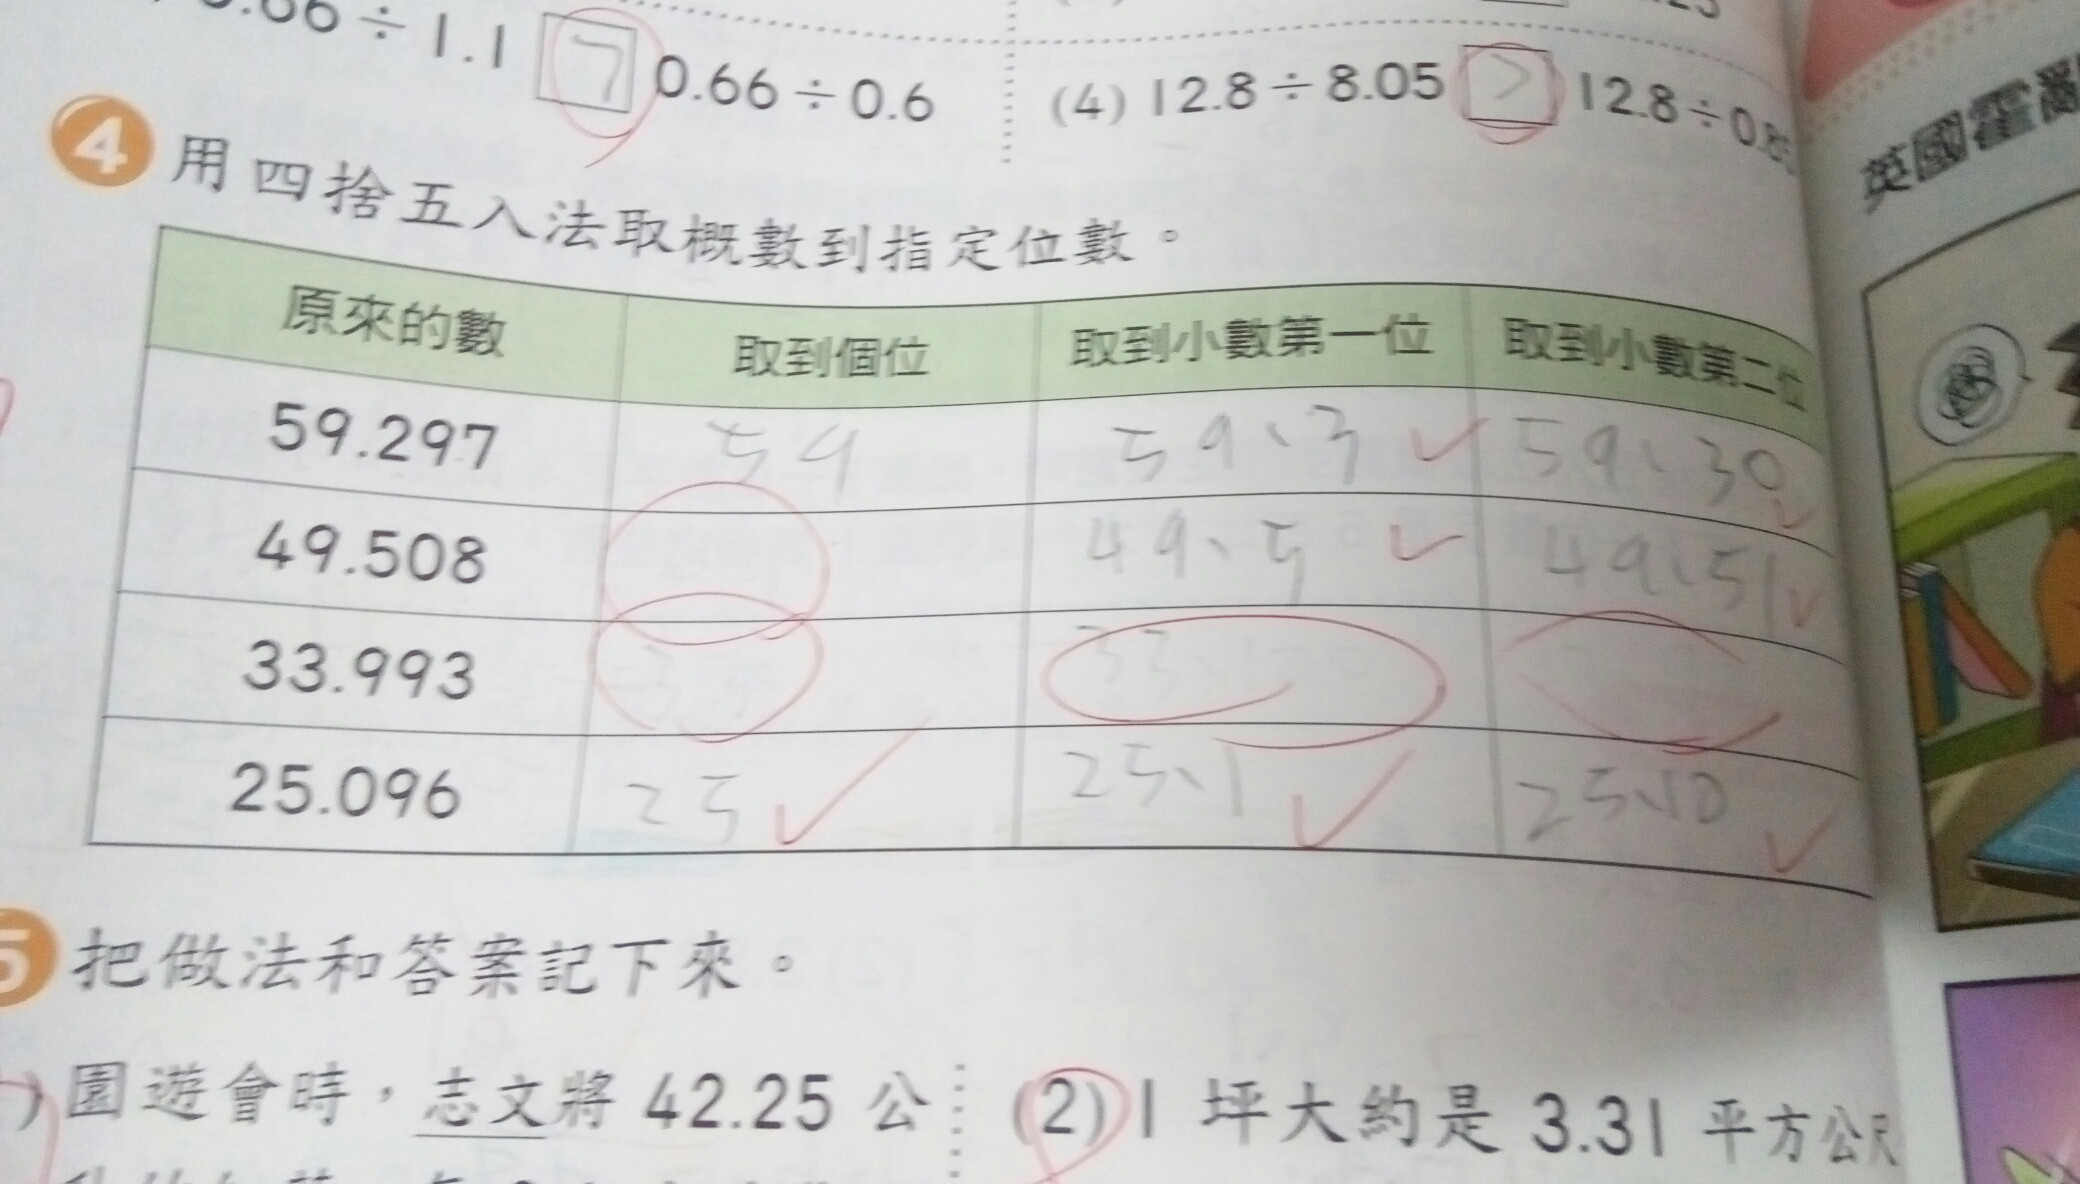 ÷ 1.1 0.66 ÷ 0.6
(4) 12.8 ÷ 8.05 > 12.8 ÷ 0.85
4 用四捨五入法取概數到指定位數。
原來的數 取到個位 取到小數第一位 取到小數第二位
59.297 59 59.3 59.30
49.508 49.5 49.51
33.993
25.096 25 25.1 25.10
5 把做法和答案記下來。
園遊會時，志文將 42.25 公
(2) 1 坪大約是 3.31 平方公尺
英國霍